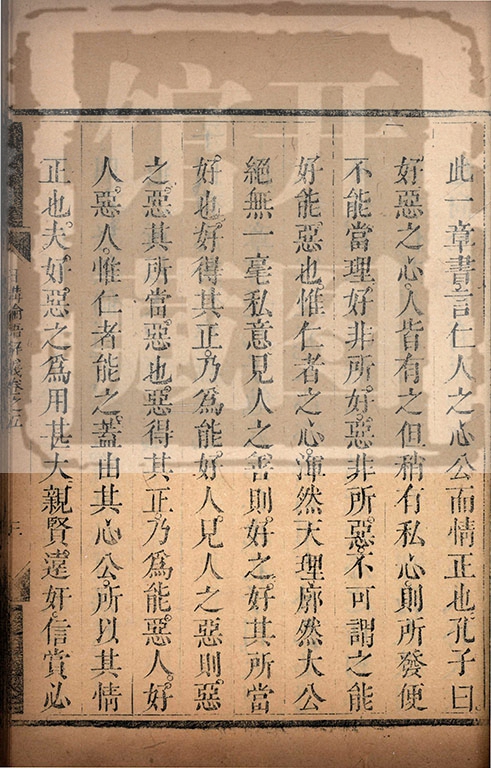 此一章書言仁人之心公而情正也孔子曰
好惡之心人皆有之但稍有私心則所發便
不能當理好非所好惡非所惡不可謂之能
好能惡也惟仁者之心渾然天理廓然大公
絕無一毫私意見人之善則好之好其所當
好也好得其正乃爲能好人見人之惡則惡
之惡其所當惡也惡得其正乃爲能惡人好
人惡人惟仁者能之蓋由其心公所以其情
正也夫好惡之爲用甚大親賢遠奸信賞必
日講論語解義卷之五